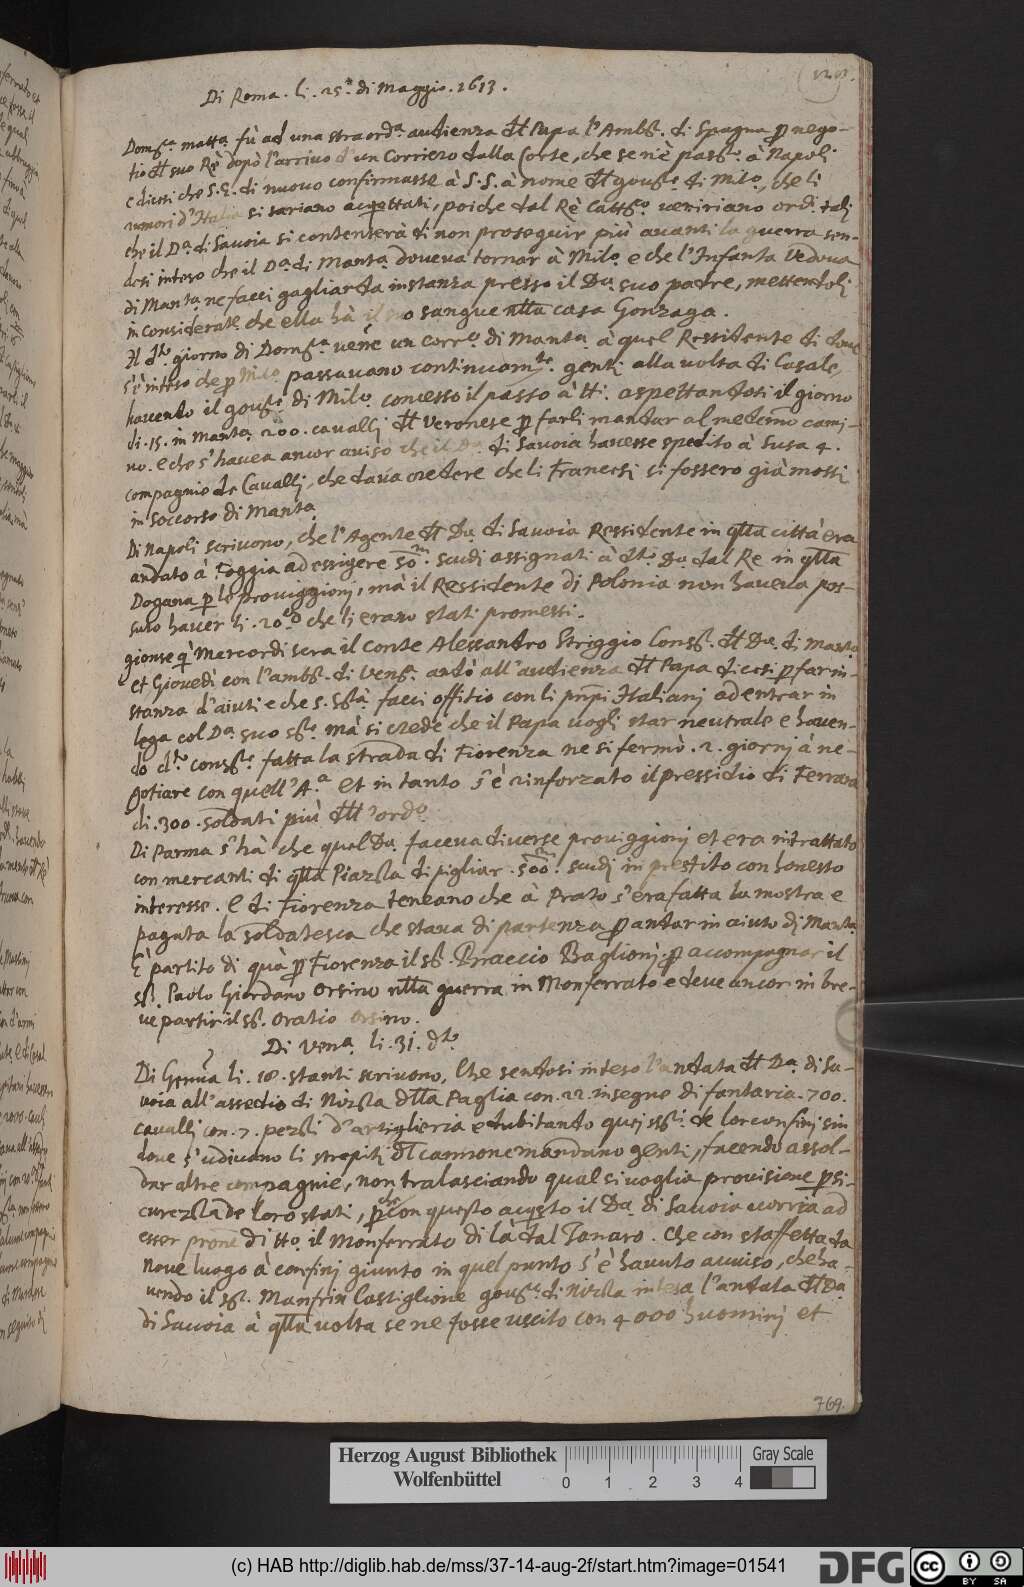 Di Roma. li. 25. di Maggio. 1613.
Domca. matta. fù ad una straorda. audienza dll Papa l'Ambr. di Spagna p nego-
tio dll suo Rè dopò l'arrivo d'un Corriero dalla Corte, che se n'è passo. à Napoli
e dicesi che S.E. di nuovo confirmasse à S.S. à nome dll goure. di Milo. che li
rumori d'Italia si sariano acquettati, poiche dal Rè Cattco. veniriano ordi. tali
che il Da. di Savoia si contenterà di non proseguir più avanti la guerra sen-
dosi inteso che il Da. di Manta. doveva tornar à Milo. e che l'Infanta Vedova
di Manta. ne facci gagliarda instanza presso il Da. suo padre, mettendoli
in consideratne che ella hà il suo sangue nlla casa Gonzaga.
Il dto. giorno di Domca. vene un Corro. di Manta. à quel Ressidente di dove
s'è inteso che p Milo. passavano continuamte. genti alla volta di Casale,
havendo il goure. di Milo. concesso il passo à tti. aspettandosi il giorno
di. 15. in Manta. 200. cavalli dll Veronese p farli mandar al medemo cami-
no. e che s'havea ancor aviso che il Da. di Savoia havesse spedito à Susa 4.
compagnie de Cavalli, che dava credere che li Francesi si fossero già mossi
in soccorso di Manta.
Di Napoli scrivono, che l'Agente dll Da. di Savoia Ressidente in qlla città era
andato à Foggia ad essigere 50m. scudi assignati à dto. Da. dal Re in qlla
Dogana p le proviggioni, mà il Ressidente di Polonia non haveva pos-
suto haver li. 20m che li erano stati promessi.
gionse qì Mercordi sera il Conte Alessandro Striggio Consre. dll Da. di Manta.
et Giovedì con l'ambr. di Vena. andò all'audienza dll Papa dicesi p far in-
stanza d'aiuti e che S. Stà. facci offitio con li pnpi Italiani ad entrar in
lega col Da. suo sre. mà si crede che il Papa vogli star neutrale e haven-
do dto. consre. fatta la strada di Fiorenza ne si fermò. 2. giorni à ne-
gotiare con quell'A.a et in tanto s'è rinforzato il pressidio di Ferrara
di. 300. soldati più dll' ordo.
Di Parma s'hà che quel Da. faceva diverse proviggioni et era in trattato
con mercanti di qlla Piazza di pigliar. 500m. scudi in prestito con honesto
interesse. e di Fiorenza teneano che à Prato s'era fatta la mostra e
pagata la soldatesca che stava di partenza p andar in aiuto di Manta.
E partito di quà p Fiorenza il sr. Braccio Baglioni. p accompagnar il
Sr. Paolo Giordano Orsino nlla guerra in Monferrato e deve ancor in bre-
ve partir il sr. Oratio Orsino.
Di Vena. li. 31. dto.
Di Genova li. 18. stanti scrivono, Che sendosi inteso l'andata dll Da. di Sa-
voia all'assedio di Nizza dlla Paglia con. 22. insegne di fantaria. 700.
cavalli con. 7. pezzi d'artiglieria e dubitando quei ssri. de lor confini sin
dove s'udivano li strepiti dl cannone mandano genti, facendo assol-
dar altre compagnie, non tralasciando qual si voglia provisione p si-
curezza de loro stati, pche con questo acqsto il Da. di Savoia verria ad
esser prone di tto. il Monferrato di là dal Tanaro. Che con staffetta da
Nove luogo à confini giunto in quel punto s'è havuto avviso, che ha-
vendo il sr. Manfrin Castiglione goure. di Nizza intesa l'andata dll Da.
di Savoia à qlla volta se ne fosse uscito con 4000 huomini et
769.
Herzog August Bibliothek
Wolfenbüttel
0 1 2 3 4
Gray Scale
(c) HAB http://diglib.hab.de/mss/37-14-aug-2f/start.htm?image=01541
DFG
cc BY SA